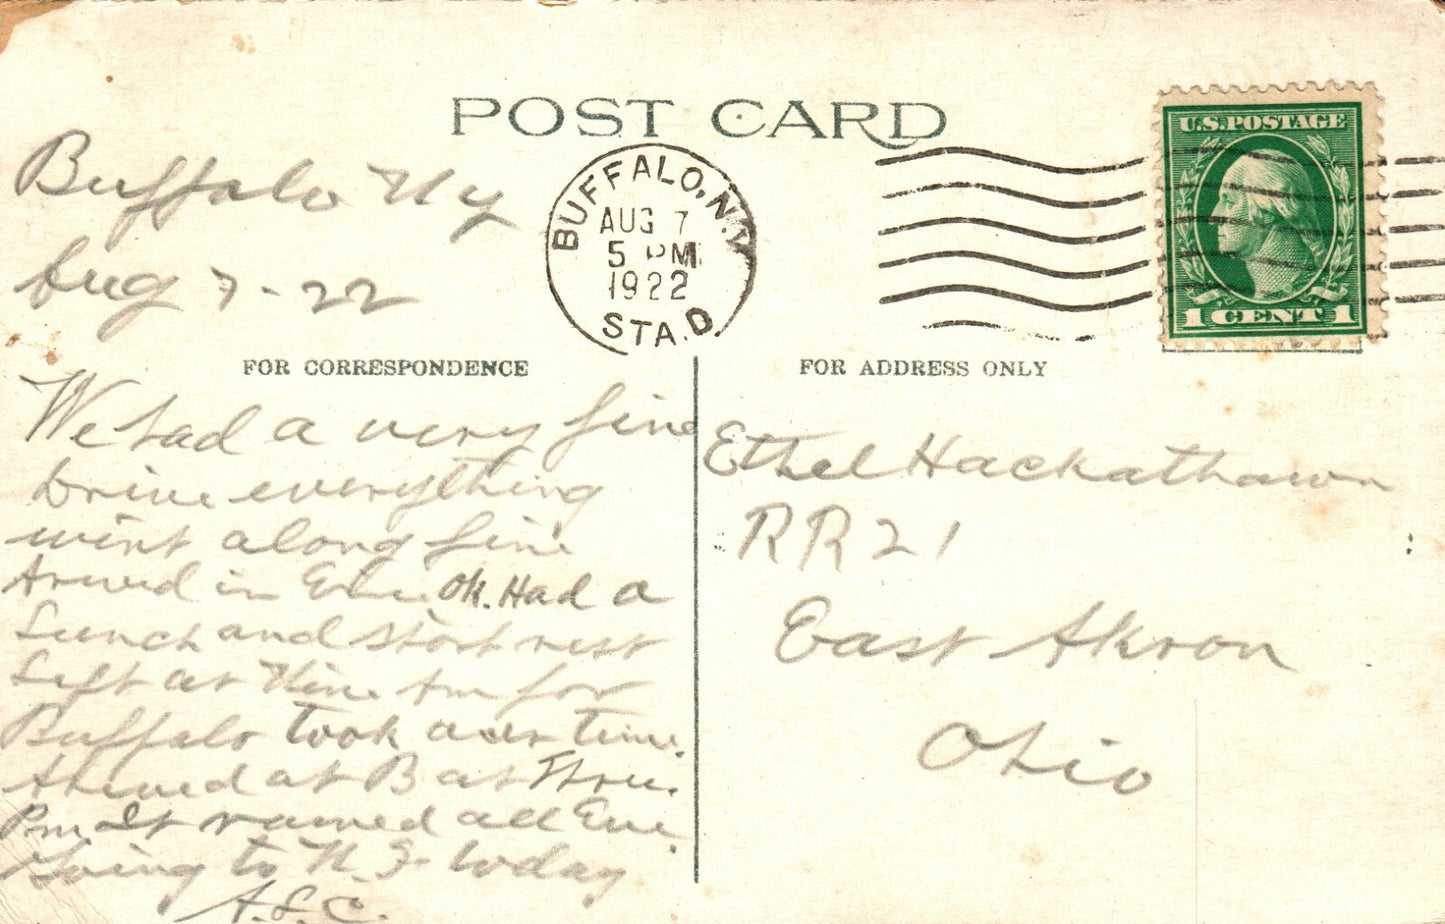 POST CARD
U.S.POSTAGE
1 CENT 1
BUFFALO, N.Y.
AUG 7
5 PM
1922
STA. D.
Buffalo Ny
Aug 7-22
FOR CORRESPONDENCE
We had a very fine
Drive everything
went along fine
Arived in Erie Ok. Had a
Lunch and short rest
Left at Nine Am for
Buffalo took our time.
Arived at B at Three.
Pm. It rained all Eve.
Going to N. F. today
A.L.C.
FOR ADDRESS ONLY
Ethel Hackathawn
RR 21
East Akron
Ohio